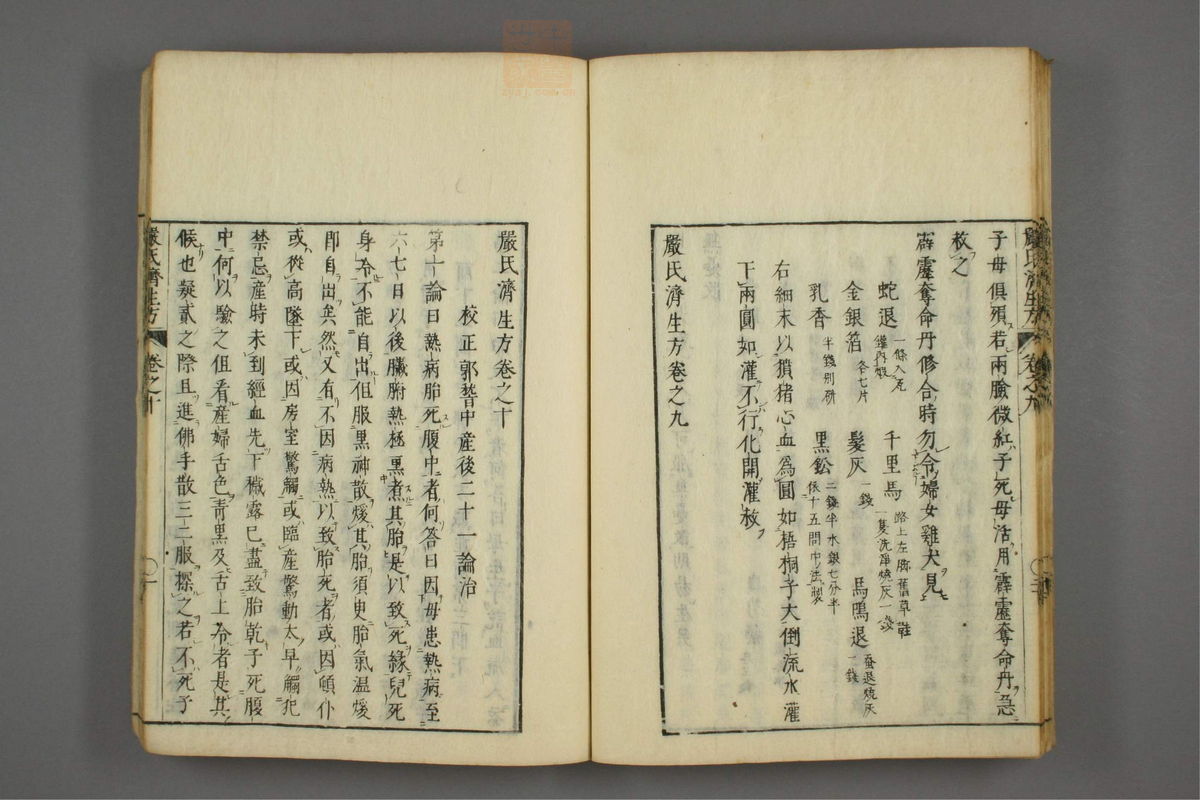 子母俱殞若兩臉微紅子死母活用霹靂奪命丹急
救之
霹靂奪命丹修合時勿令婦女雞犬見
蛇退一條入瓦罐內煅 千里馬路上左脚舊草鞋一隻洗淨燒灰一錢
金銀箔各七片 髮灰一錢 馬鳴退蚕退燒灰一錢
乳香半錢別研 黑鉛二錢半水銀七分半依十五問中法製
右細末以獖猪心血為圓如梧桐子大倒流水灌
下兩圓如灌不行化開灌救
嚴氏濟生方卷之九
嚴氏濟生方 卷之九
嚴氏濟生方卷之十
校正郭稽中產後二十一論治
第一論曰熱病胎死腹中者何答曰因母患熱病至
六七日以後臟腑熱極熏煮其胎是以致死緣兒死
身冷不能自出但服黑神散煖其胎須臾胎氣溫煖
即自出矣然又有不因病熱以致胎死者或因頓仆
或從高墜下或因房室驚觸或臨產驚動太早觸犯
禁忌產時未到經血先下穢露已盡致胎乾子死腹
中何以驗之但看產婦舌色青黑及舌上冷者是其
候也疑貳之際且進佛手散三二服探之若不死子
嚴氏濟生方 卷之十